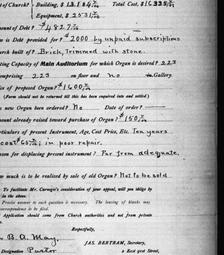 of Church? Building, $ Total Cost, $16,325
Equipment, $
ount of Debt? $
is Debt provided for? $2000 by unpaid subscriptions
rch built of Brick, Trimmed with stone.
ting Capacity of Main Auditorium for which Organ is desired? 223
mprising 223 on floor and no in Gallery.
of proposed Organ? $1600
(Form should not be returned till this has been enquired into and settled.)
new Organ been ordered? No Date of order?
ount already raised toward purchase of Organ? $150
rticulars of present Instrument, Age, Cost Price, Etc. Ten years
cost $65; in poor repair.
son for displacing present instrument? Far from adequate.
w much is to be realized by sale of old Organ? Not to be sold
To facilitate Mr. Carnegie's consideration of your appeal, will you oblige by
the above.
Precise answer to each question is necessary. The leaving of blanks may
correspondence to be filed.
Application should come from Church authorities and not from private
Respectfully,
B. A. May, JAS. BERTRAM, Secretary,
Designation Pastor 2 East 91st Street,